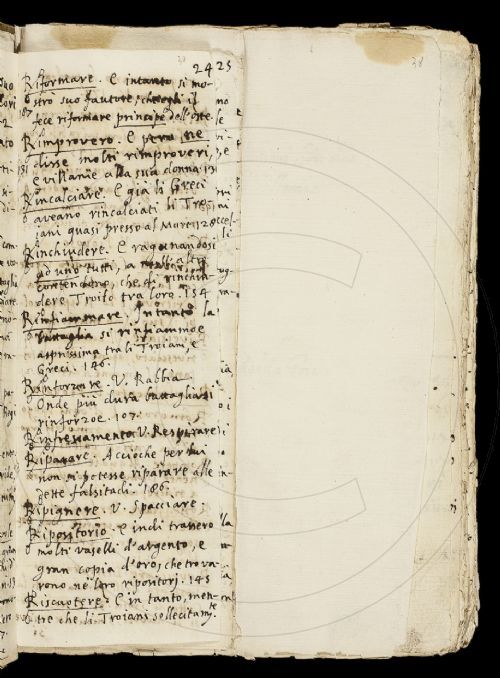 24 25
Riformare. E intanto si mo-
strò suo fautore, che egli il
fece riformare principe dell'oste.
Rimprovero. E però ne
disse molti rimproveri,
e villanie alla sua donna 131
Rincalciare. E già li Greci
aveano rincalciati li Tro-
iani quasi presso al Mare 128
Rinchiudere. E ragunandosi
ad uno tutti,
che di rinchiu-
dere Troilo tra loro. 154
Rinfiammare. Intanto la
battaglia si rinfiammoe
asprissima tra li Troiani, e
Greci. 146.
Rinforzare. V. Rabbia
Onde più dura battaglia si
rinforzoe. 107.
Rinfrescamento V. Respirare
Riparare. Acciocchè per lui
non si potesse riparare alle
dette falsitadi. 186.
Ripignere. V. Spacciare.
Ripositorio. E indi trassero
molti vaselli d'argento, e
gran copia d'oro, che trova-
rono ne loro ripositori. 145
Riscuotere. E in tanto, men-
tre che li Troiani sollecitamte
38